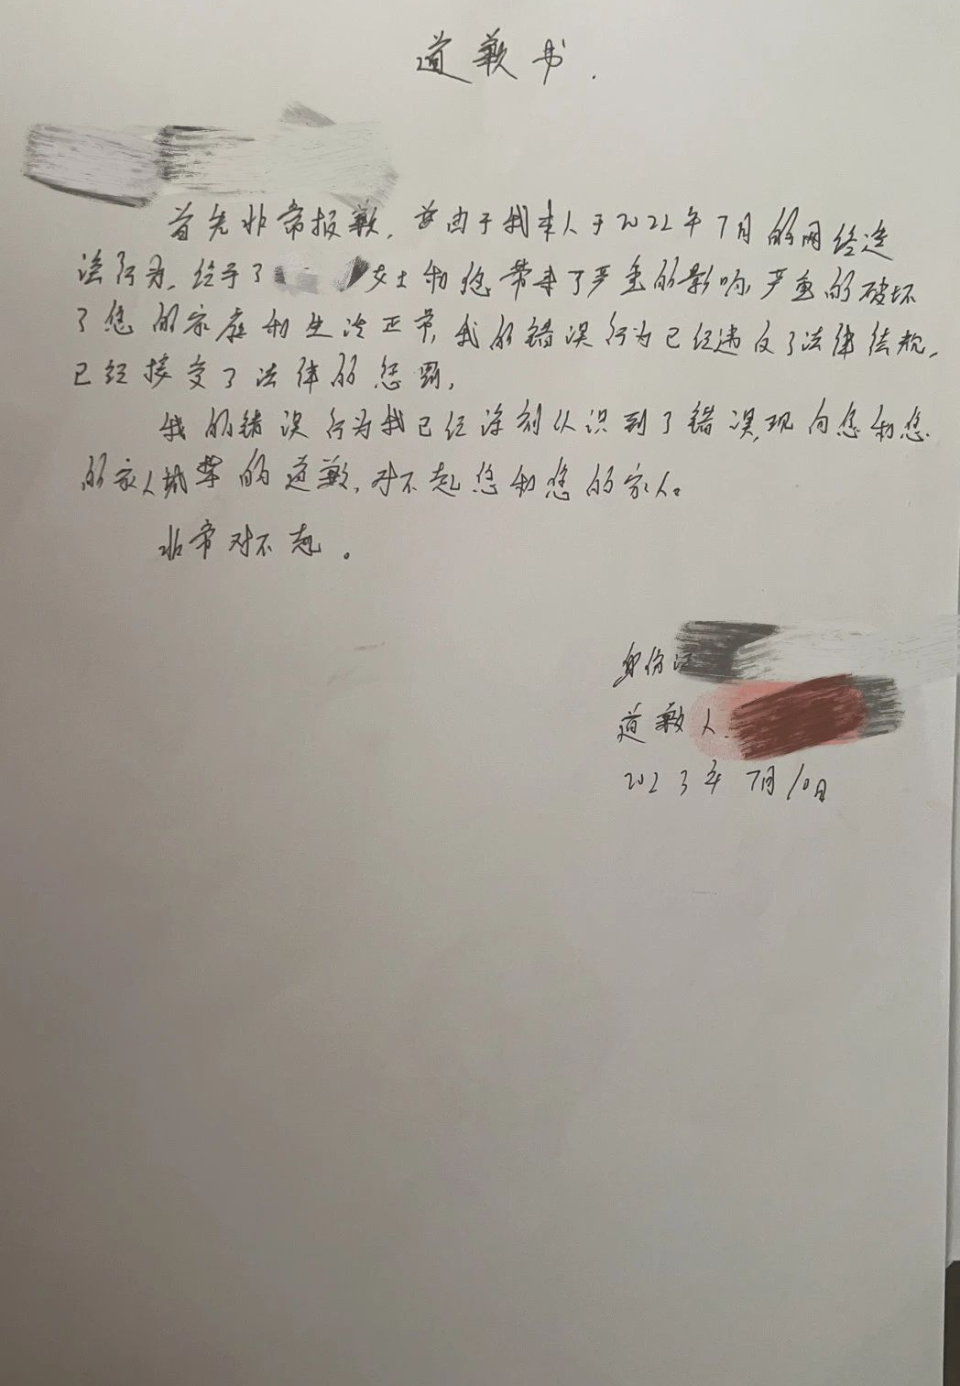 道歉书.
首先非常报歉,由于我本人于2022年7月的网络违
法行为,给予了女士和您带来了严重的影响,严重的破坏
了您的家庭和生活正常,我的错误行为已经违反了法律法规,
已经接受了法律的惩罚,
我的错误行为我已经深刻认识到了错误,现向您和您
的家人诚挚的道歉,对不起您和您的家人。
非常对不起。
身份证
道歉人.
2023年7月10日